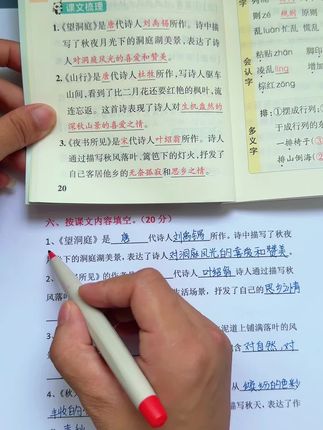 课文梳理
1.《望洞庭》是唐代诗人刘禹锡所作。诗中描
写了秋夜月光下的洞庭湖美景,表达了诗
人对洞庭风光的喜爱和赞美。
2.《山行》是唐代诗人杜牧所作,写诗人驱车
山间,看到了比二月花还要红艳的枫叶,流
连忘返。这首诗表现了诗人对生机盎然的
深秋山景的喜爱之情。
3.《夜书所见》是宋代诗人叶绍翁所作。诗人
通过描写秋风落叶、篱笆下的灯火,抒发了
自己客居他乡的无奈孤寂和思乡之情。
20
会认字
多义字
规则 原则
乱luàn 忙乱 慌乱
粘贴zhān
凌乱líng 增加
棕红zōng
排:①摆成行列;
干成行的东
一排椅子
排山倒海(②
六、按课文内容填空。(20分)
1、《望洞庭》是 唐 代诗人刘禹锡所作,诗中描写了秋夜
下的洞庭湖美景,表达了诗人对洞庭风光的喜爱和赞美。
所见》的作者是 代诗人叶绍翁 诗人通过描写秋
风落 生活场景,抒发了自己的思乡之情
泥道上铺满落叶的风
含对自然,对
4、《秋 从 缤纷的色彩
丰收的 描写秋天,表达了作